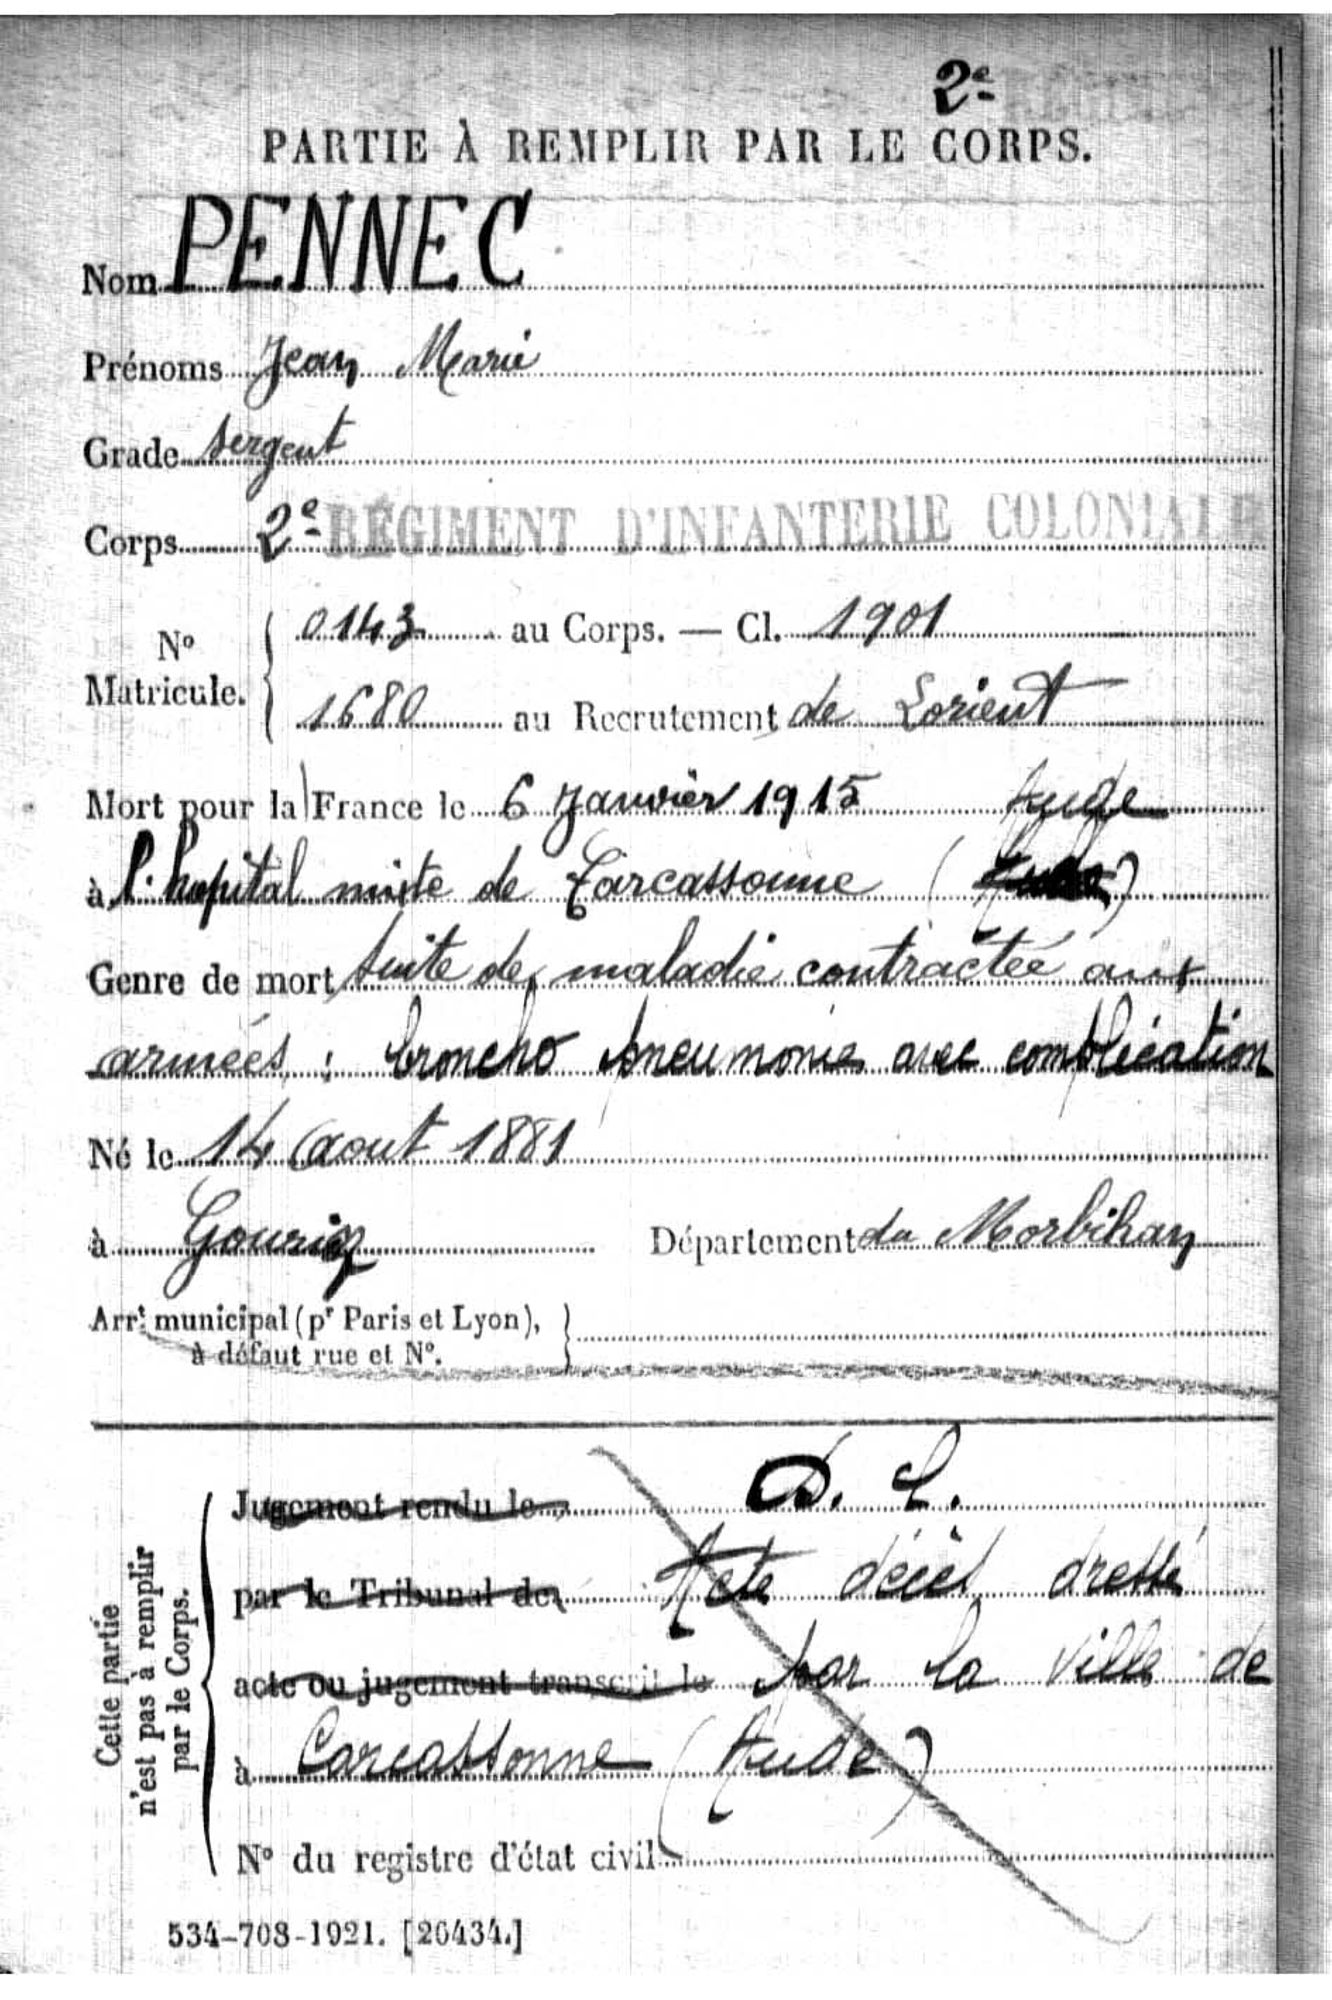 2e
PARTIE À REMPLIR PAR LE CORPS.
Nom PENNEC
Prénoms Jean Marie
Grade Sergent
Corps 2e RÉGIMENT D'INFANTERIE COLONIALE
No Matricule. { 0143 au Corps. — Cl. 1901
1680 au Recrutement de Lorient
Mort pour la France le 6 Janvier 1915 Aude
à l'hopital mixte de Carcassonne ( )
Genre de mort suite de maladie contractée aux
armées : broncho pneumonie avec complication
Né le 14 aout 1881
à Gourin Département du Morbihan
Arrt municipal (pr Paris et Lyon),
à défaut rue et No.
Cette partie
n'est pas à remplir
par le Corps.
Jugement rendu le D. L.
par le Tribunal de Acte décès dressé
acte ou jugement transcrit le par la Ville de
à Carcassonne (Aude)
No du registre d'état civil
534-708-1921. [26434.]